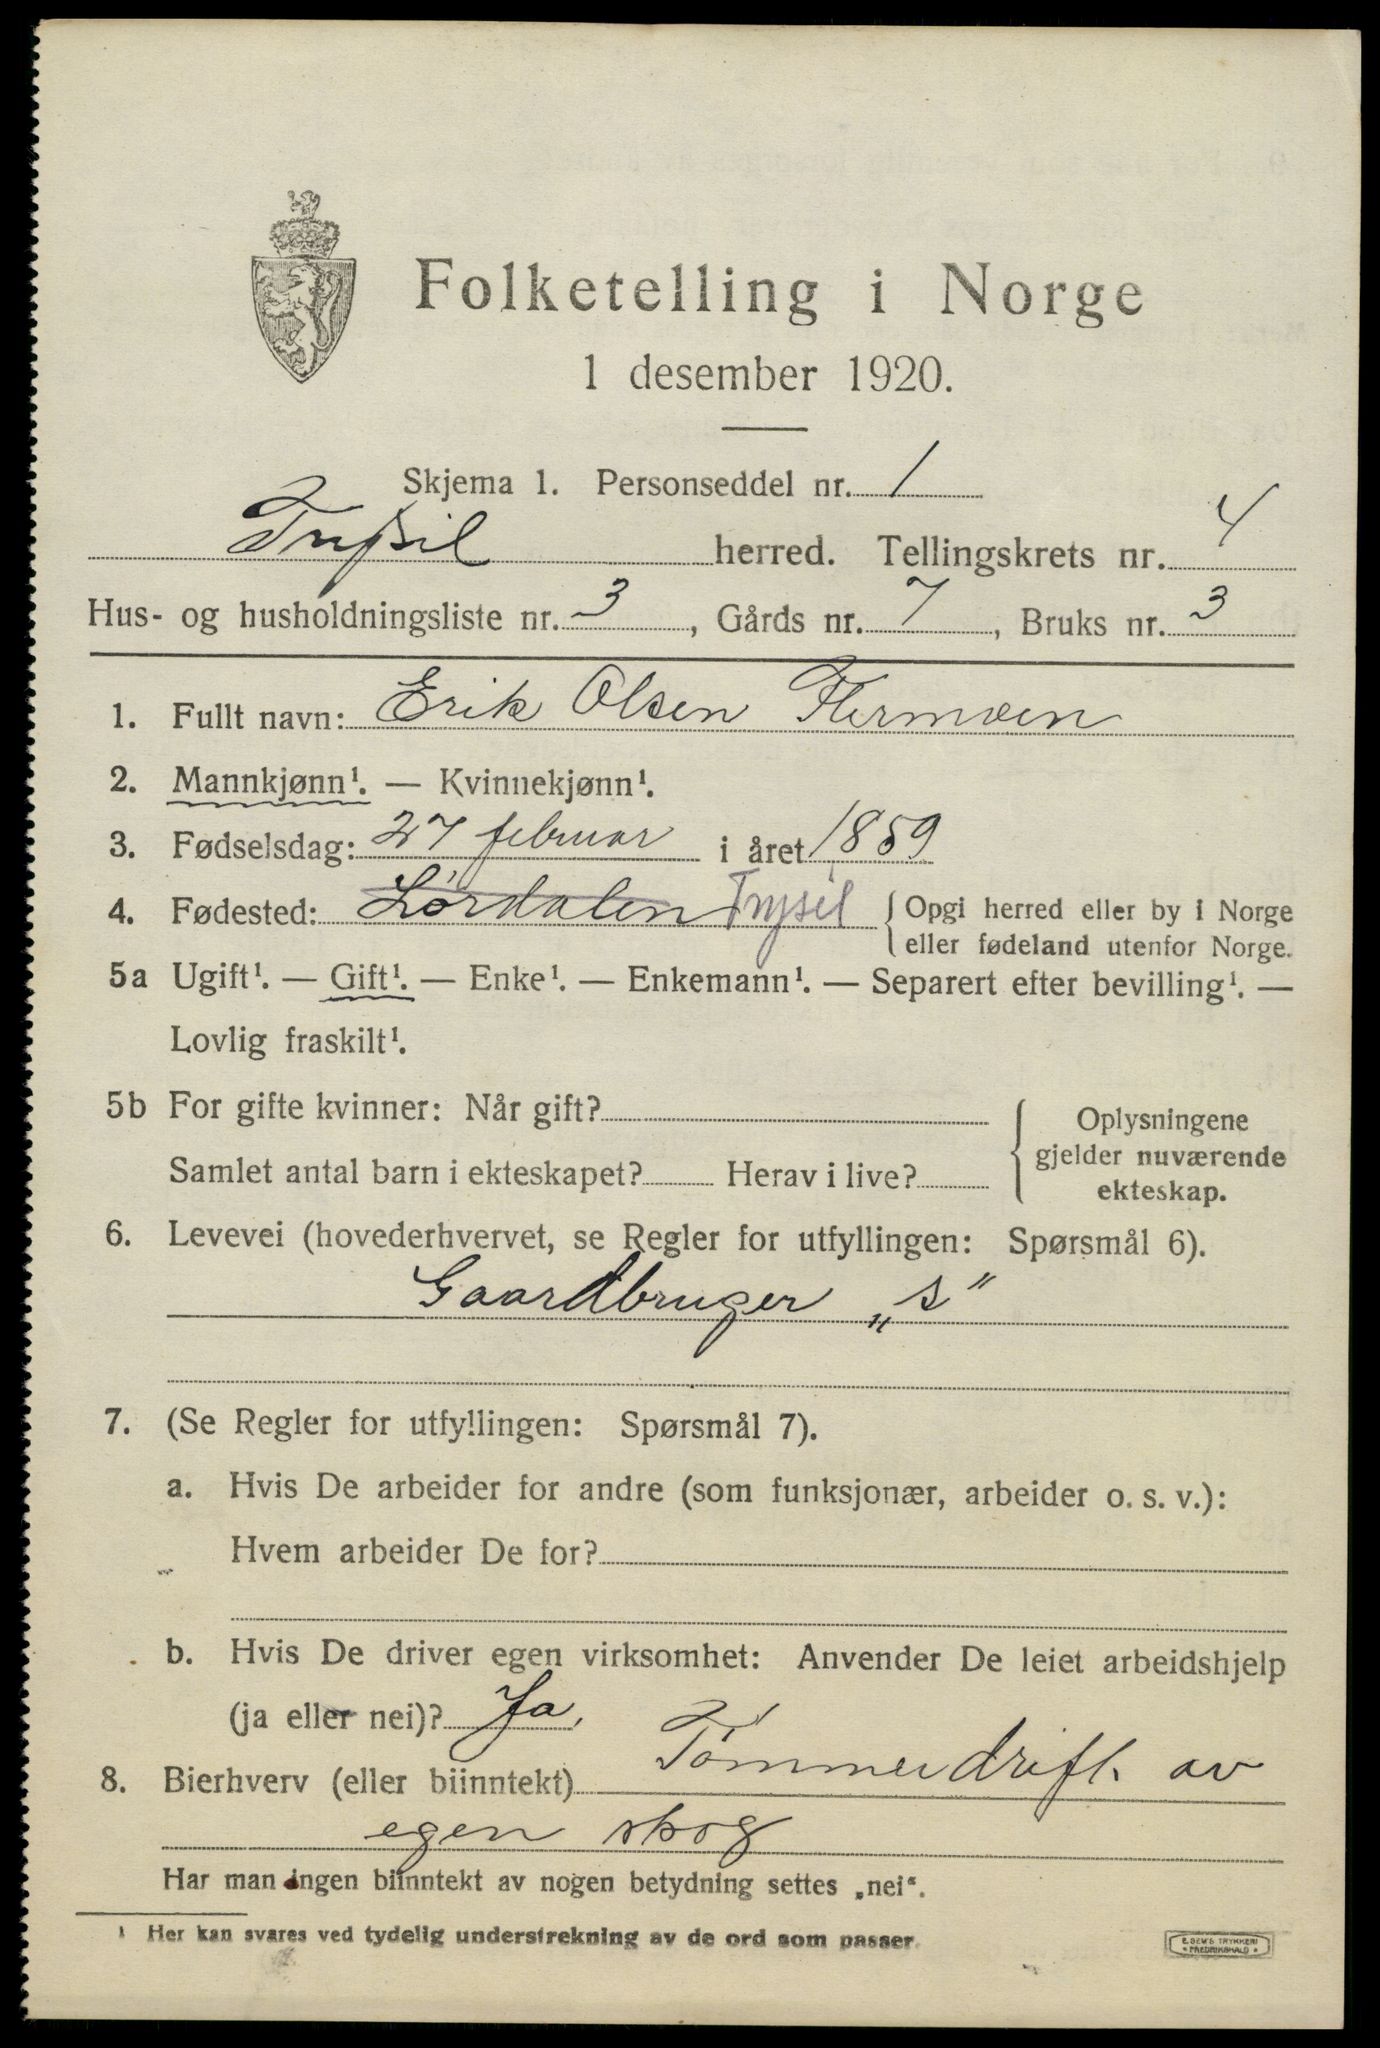 Folketelling i Norge
1 desember 1920.
Skjema 1. Personseddel nr. 1
Trysil herred. Tellingskrets nr. 4
Hus- og husholdningsliste nr. 3, Gårds nr. 7, Bruks nr. 3
1. Fullt navn: Erik Olsen Flermoen
2. Mannkjønn¹. — Kvinnekjønn¹.
3. Fødselsdag: 27 februar i året 1859
4. Fødested: Lørdalen Trysil { Opgi herred eller by i Norge
eller fødeland utenfor Norge.
5a Ugift¹. — Gift¹. — Enke¹. — Enkemann¹. — Separert efter bevilling¹. —
Lovlig fraskilt¹.
5b For gifte kvinner: Når gift?
Samlet antal barn i ekteskapet? Herav i live?
Oplysningene
gjelder nuværende
ekteskap.
6. Levevei (hovederhvervet, se Regler for utfyllingen: Spørsmål 6).
Gaardbruger „s"
7. (Se Regler for utfyllingen: Spørsmål 7).
a. Hvis De arbeider for andre (som funksjonær, arbeider o. s. v.):
Hvem arbeider De for?
b. Hvis De driver egen virksomhet: Anvender De leiet arbeidshjelp
(ja eller nei)? Ja.
8. Bierhverv (eller biinntekt) Tømmerdrift. av
egen skog
Har man ingen biinntekt av nogen betydning settes „nei“.
¹ Her kan svares ved tydelig understrekning av de ord som passer.
E. SEM'S TRYKKERI
• FREDRIKSHALD •